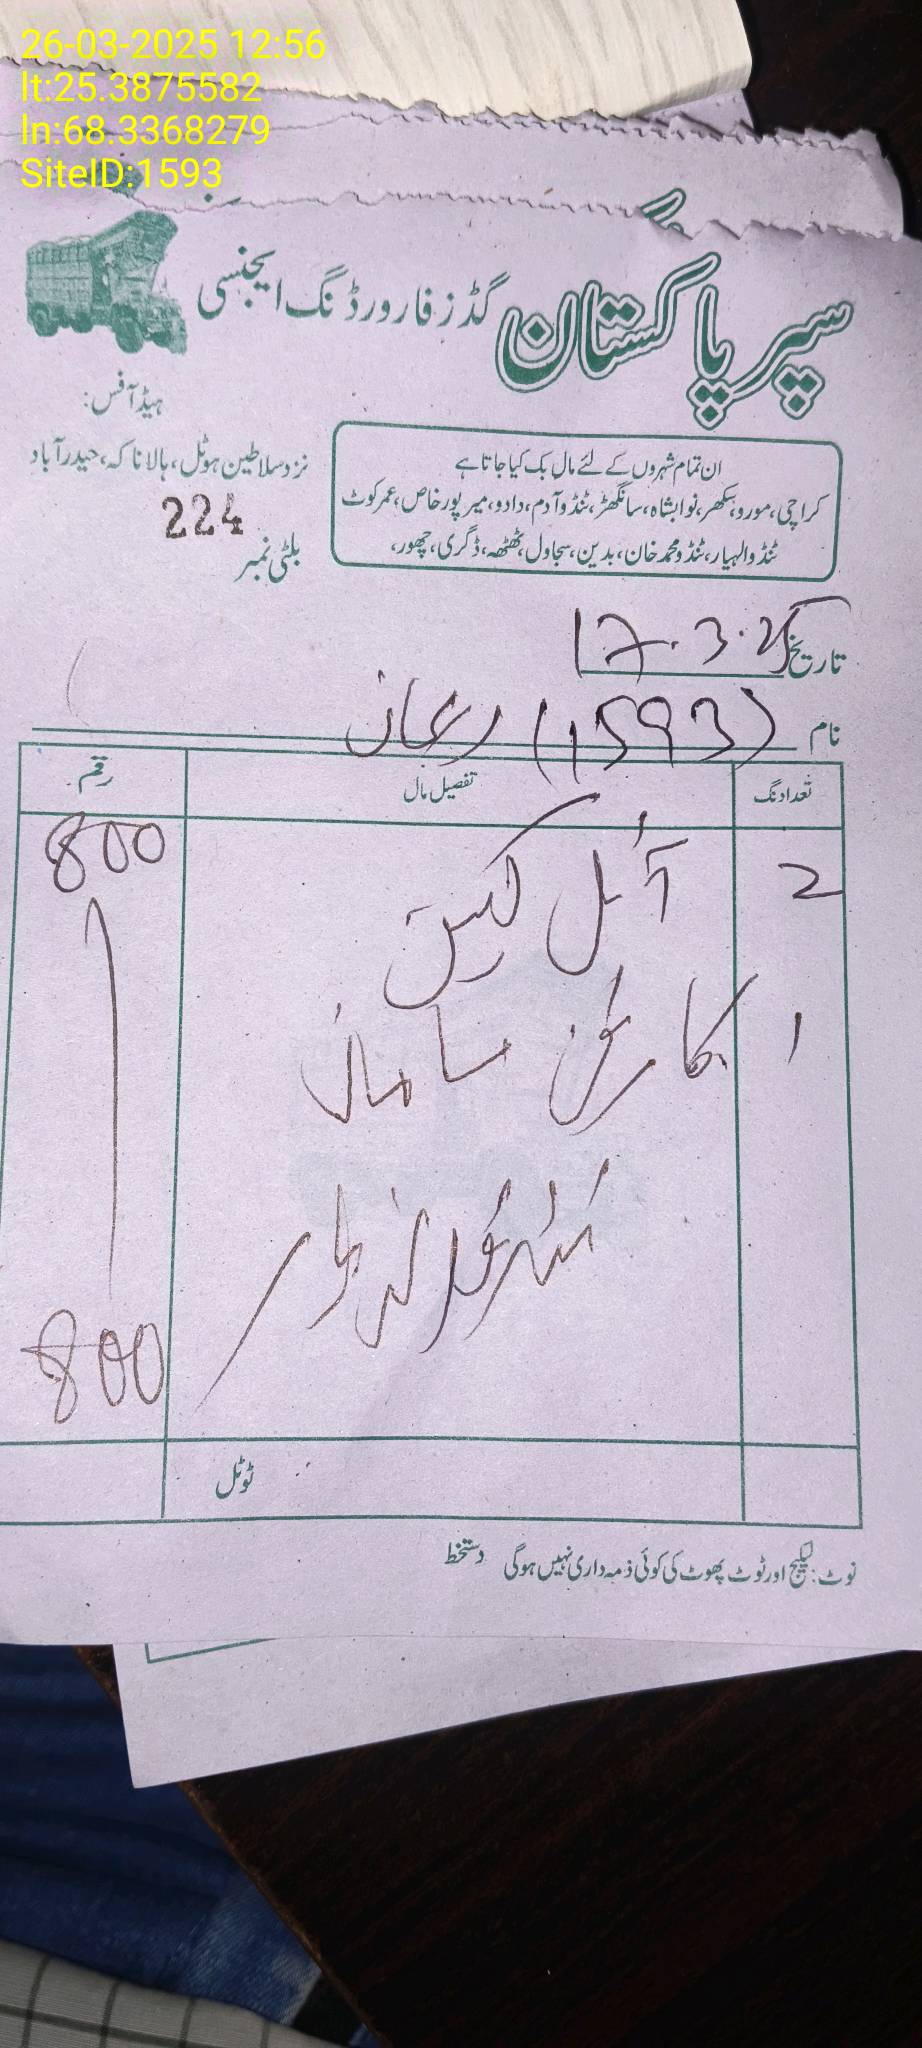 26-03-2025 12:56
lt:25.3875582
ln:68.3368279
SiteID:1593
سپر پاکستان گڈز فارورڈنگ ایجنسی
ہیڈ آفس:
نزد سلاطین ہوٹل، ہالا ناکہ، حیدرآباد
ان تمام شہروں کے لئے مال بک کیا جاتا ہے
کراچی، مورو، سکھر، نوابشاہ، سانگھڑ، ٹنڈو آدم، دادو، میرپور خاص، عمر کوٹ
ٹنڈوالہیار، ٹنڈو محمد خان، بدین، سجاول، ٹھٹھہ، ڈگری، چھور،
224
بلٹی نمبر
تاریخ 17.3.25
نام (1593)
تعداد نگ تفصیل مال رقم
2 آئل کین 800
1 کارٹن سامان
800
ٹوٹل
نوٹ: لیکیج اور ٹوٹ پھوٹ کی کوئی ذمہ داری نہیں ہوگی دستخط